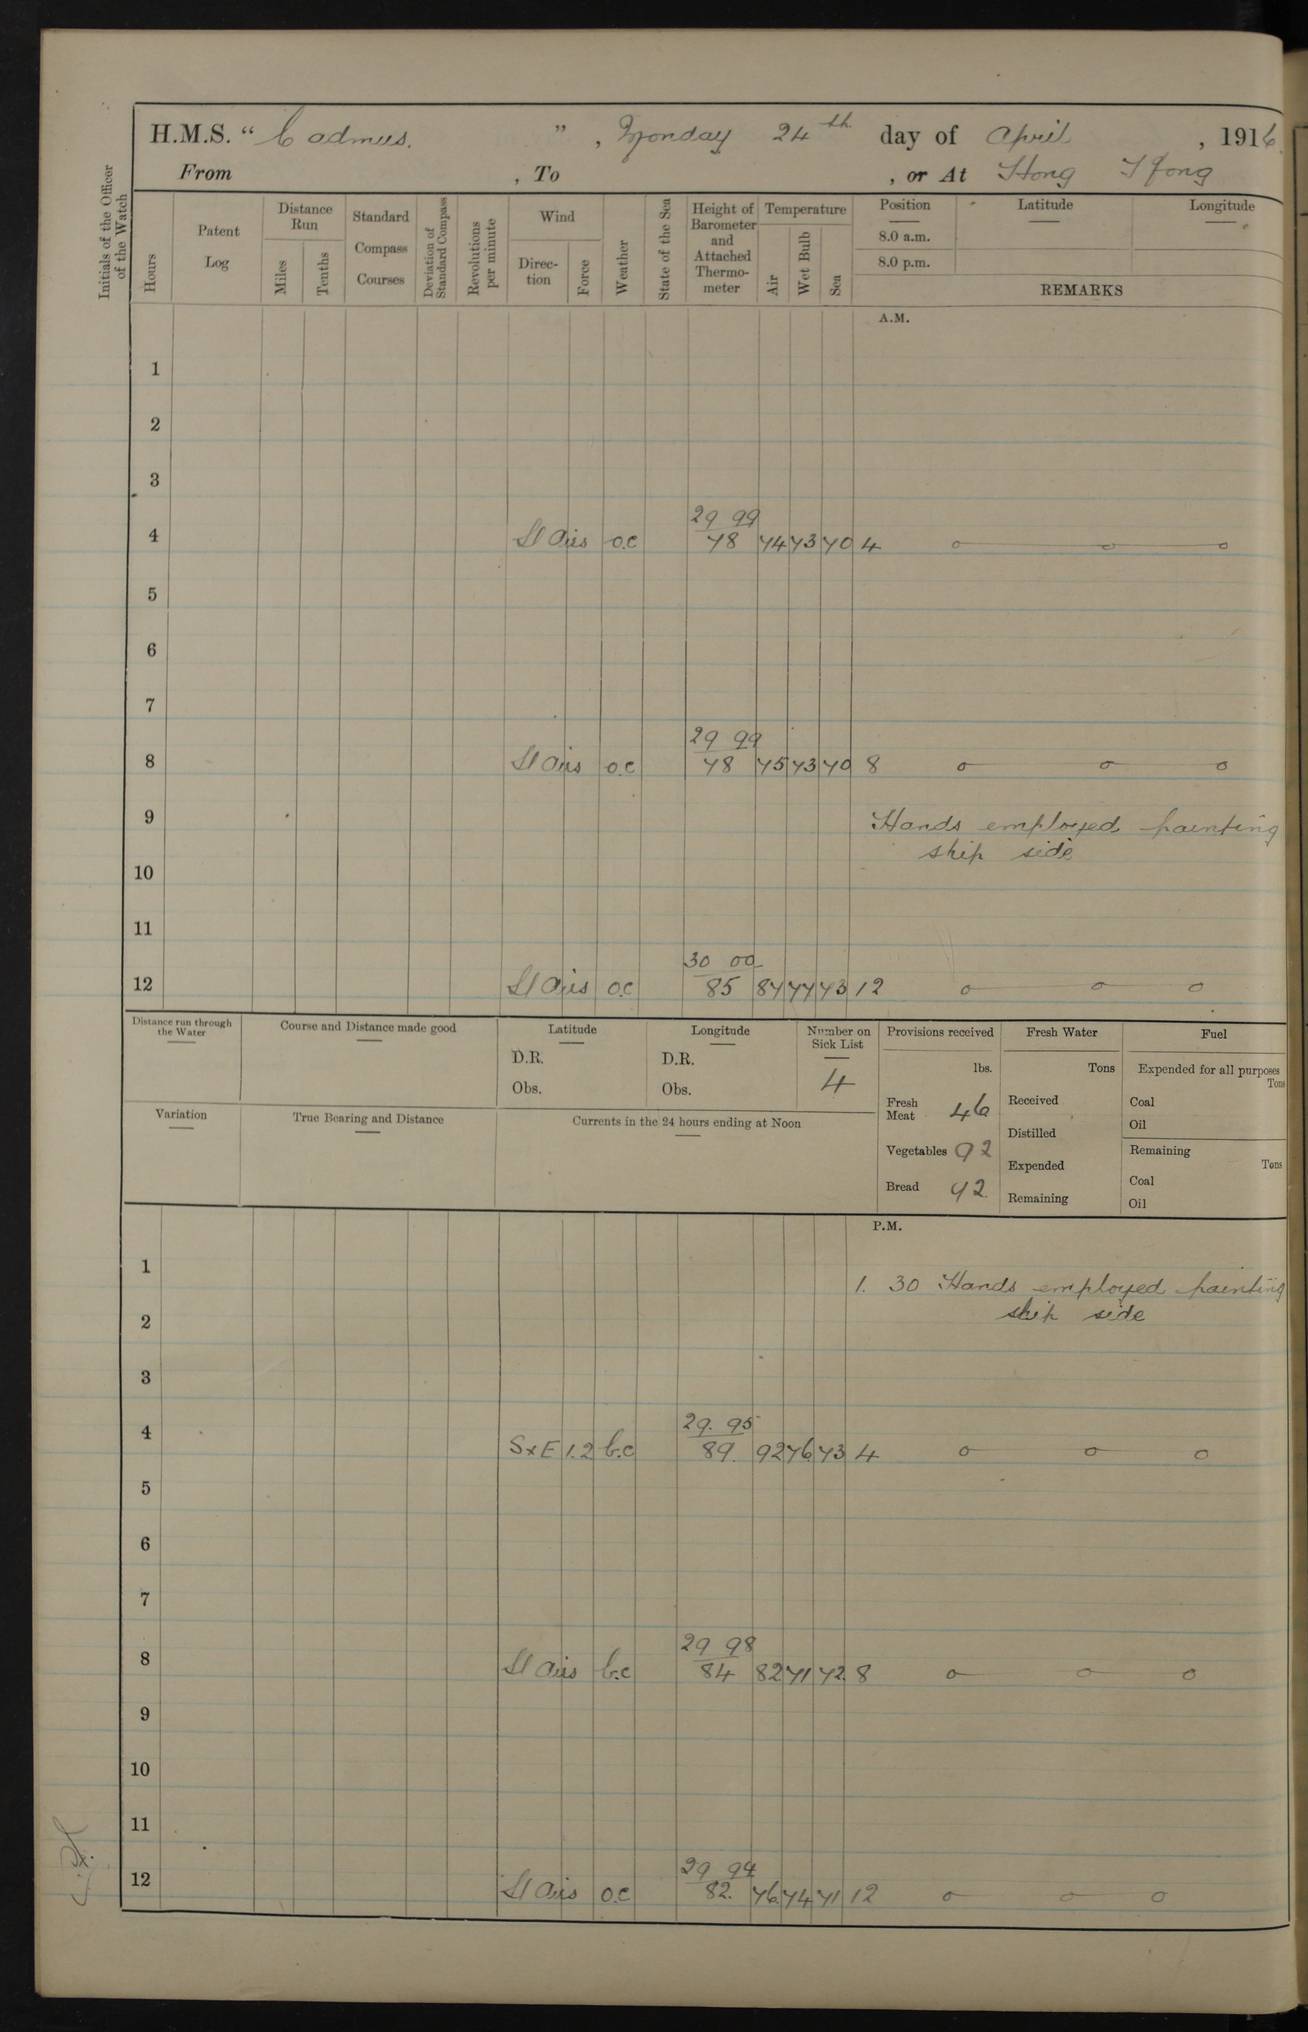 H.M.S. “ Cadmus. ” , Monday 24th day of April , 1916.
From , To , or At Hong Kong
Initials of the Officer of the Watch
Hours
Patent Log
Distance Run
Miles
Tenths
Standard Compass Courses
Deviation of Standard Compass
Revolutions per minute
Wind
Direc-tion
Force
Weather
State of the Sea
Height of Barometer and Attached Thermo-meter
Temperature
Air
Wet Bulb
Sea
Position
8.0 a.m.
8.0 p.m.
Latitude
Longitude
REMARKS
A.M.
1
2
3
29 99
4 Lt Airs o.c 78 74 73 70 4
5
6
7
29 99
8 Lt Airs o.c 78 75 73 70 8
9 Hands employed painting
ship side
10
11
30 00
12 Lt Airs o.c 85 87 77 73 12
Distance run through the Water
Course and Distance made good
Latitude
D.R.
Obs.
Longitude
D.R.
Obs.
Number on Sick List
4
Provisions received
lbs.
Fresh Meat 46
Vegetables 92
Bread 92
Fresh Water
Tons
Received
Distilled
Expended
Remaining
Fuel
Expended for all purposes
Tons
Coal
Oil
Remaining
Tons
Coal
Oil
Variation
True Bearing and Distance
Currents in the 24 hours ending at Noon
P.M.
1
1. 30 Hands employed painting
ship side
2
3
29. 95
4 SxE 1.2 b.c 89. 92 76 73 4
5
6
7
29 98
8 Lt Airs b.c 84 82 71 72. 8
9
10
11
29 94
12 Lt Airs o.c 82. 76. 74 71 12